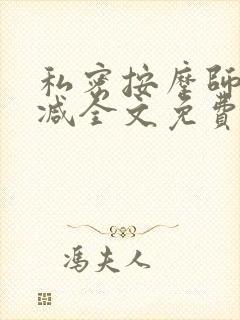 私密按摩師
减全文免費
馮夫人